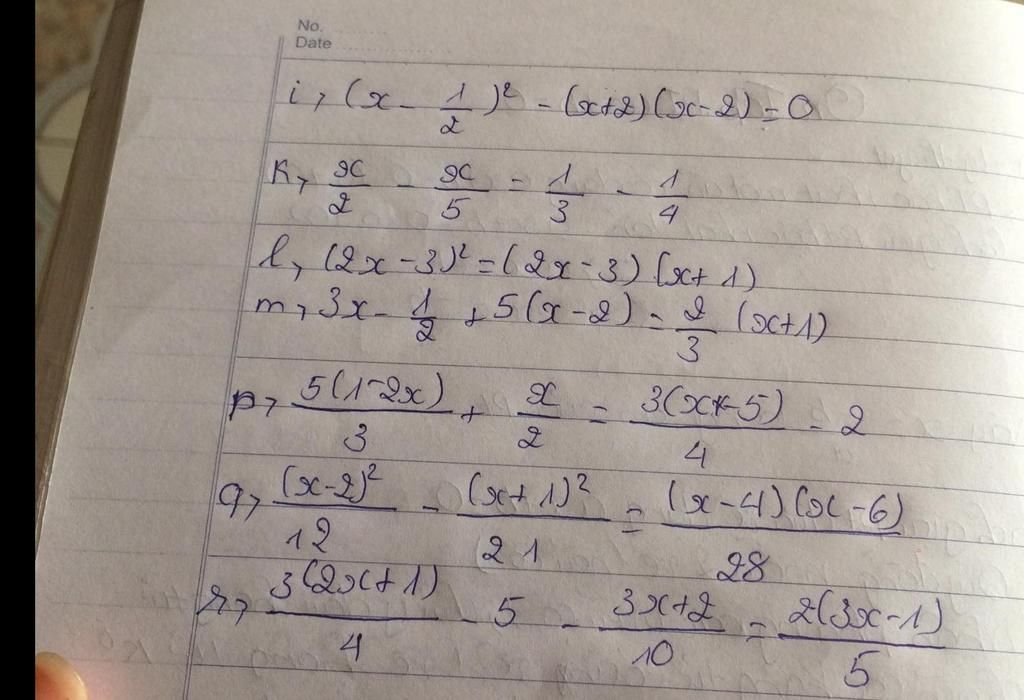 No.
Date
i, (x - 1/2)² - (x+2)(x-2) = 0
k, x/2 - x/5 = 1/3 - 1/4
l, (2x-3)² = (2x-3)(x+1)
m, 3x - 1/2 + 5(x-2) = 2/3 (x+1)
p, 5(1-2x)/3 + x/2 = 3(x-5)/4 - 2
q, (x-2)²/12 - (x+1)²/21 = (x-4)(x-6)/28
r, 3(2x+1)/4 - 5 - 3x+2/10 = 2(3x-1)/5